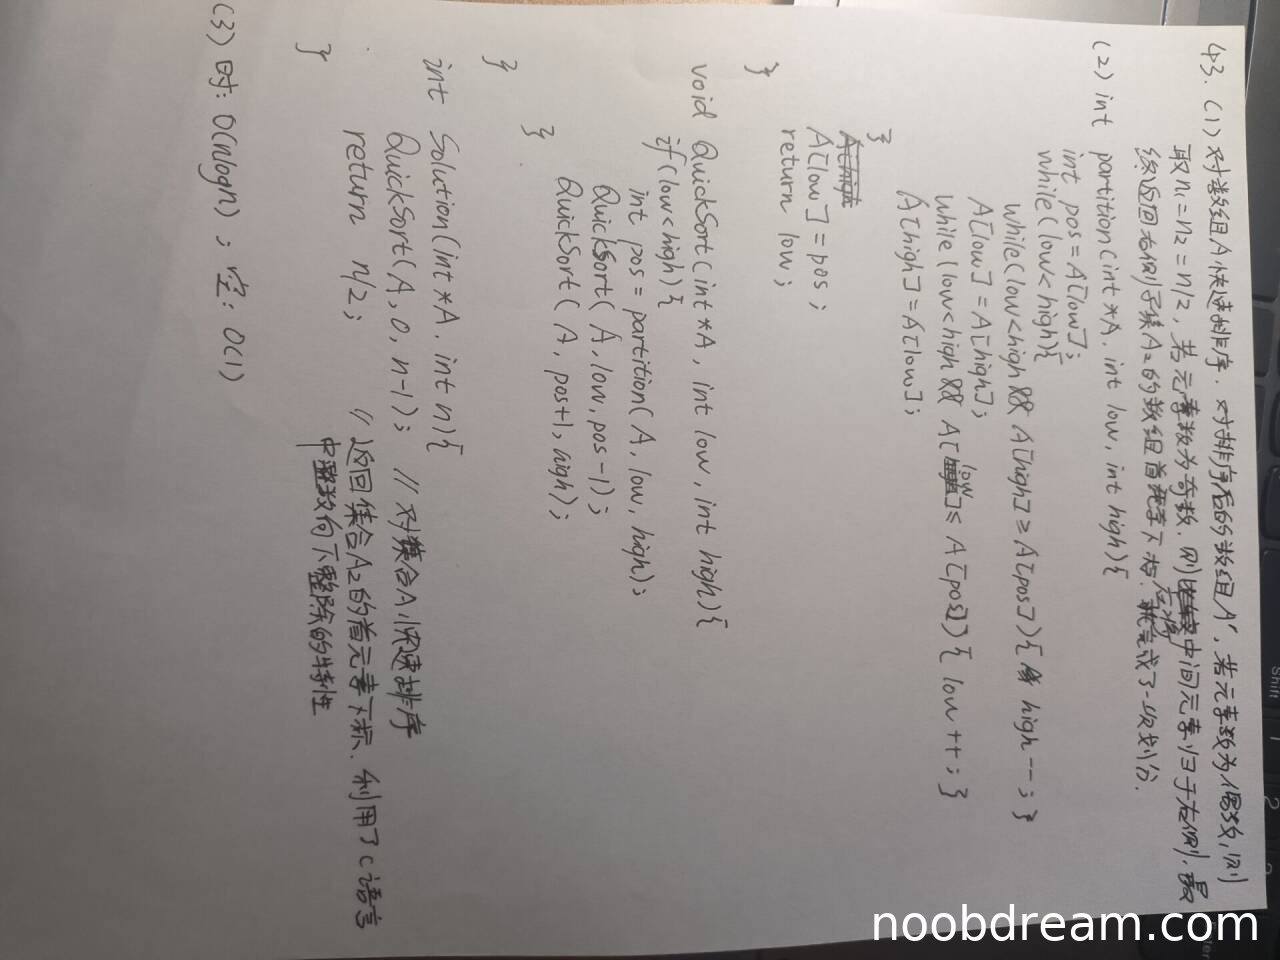 43. (1) 对数组A快速排序. 对排序后的数组A', 若元素数为偶数, 则
取n₁=n₂=n/2, 若元素数为奇数. 则应将中间元素归于右侧. 最
终返回右侧子集A₂的数组首元素下标. 就完成了一次划分.
(2) int partition(int *A, int low, int high){
int pos = A[low];
while(low<high){
while(low<high && A[high] ≥ A[pos]){ high--; }
A[low] = A[high];
while(low<high && A[low] ≤ A[pos]){ low++; }
A[high] = A[low];
}
A[low] = pos;
return low;
}
void QuickSort(int *A, int low, int high){
if(low<high){
int pos = partition(A, low, high);
QuickSort(A, low, pos-1);
QuickSort(A, pos+1, high);
}
}
int Solution(int *A, int n){
QuickSort(A, 0, n-1); // 对集合A快速排序
return n/2; // 返回集合A₂的首元素下标. 利用了C语言
中整数向下整除的特性
}
(3) 时: O(nlogn); 空: O(1)
noobdream.com